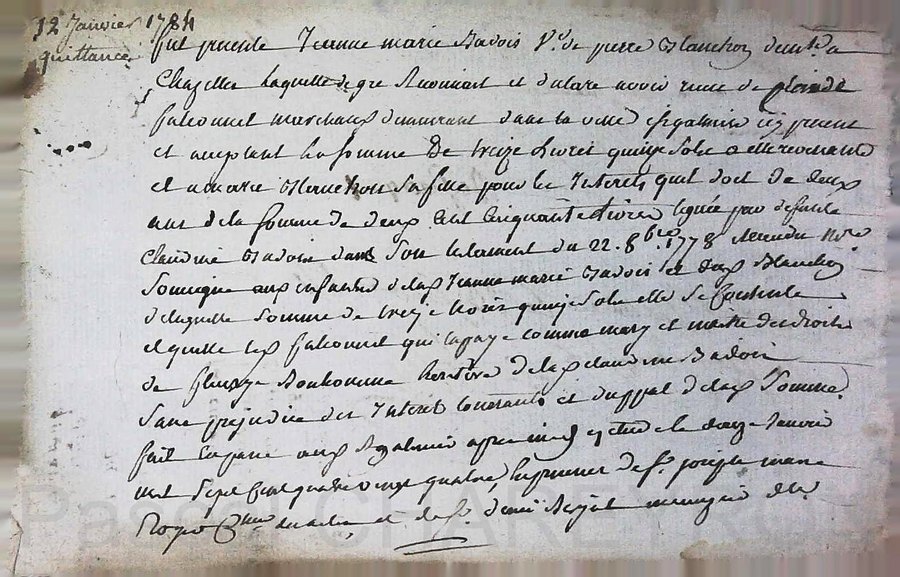 12 Janvier 1784
quittance
fut presente Jeanne marie Badois V.e de pierre Blanchon demte a
Chazelles laquelle de gre Reconnoit et declare avoir recu de
falconnet marchand demeurant dans la ville st galmier icy present
et acceptant la somme De treize Livres quinze Sols a elle revenante
et a marie Blanchon sa fille pour les Interets quil doit de deux
ans de la somme de deux Cent Cinquante Livres leguée par defunte
Claudine Badois dans Son testament du 22. 8bre 1778 Receu du Nre
Soussigne aux enfants de lad Jeanne marie Badois et dud Blanchon
de laquelle somme de treize livres quinze sols elle se Contente
et quitte led falconnet qui la paye comme mary et maitre des droits
de fleurye Bonhomme heretiere de lad claudine Badois
Sans prejudice des Interets Courants et du ppal de lad Somme
fait et passe aud St galmier apres midy etude le douze Janvier
mil Sept Cent quatre vingt quatre En presence de Sr joseph marie
et de Sr